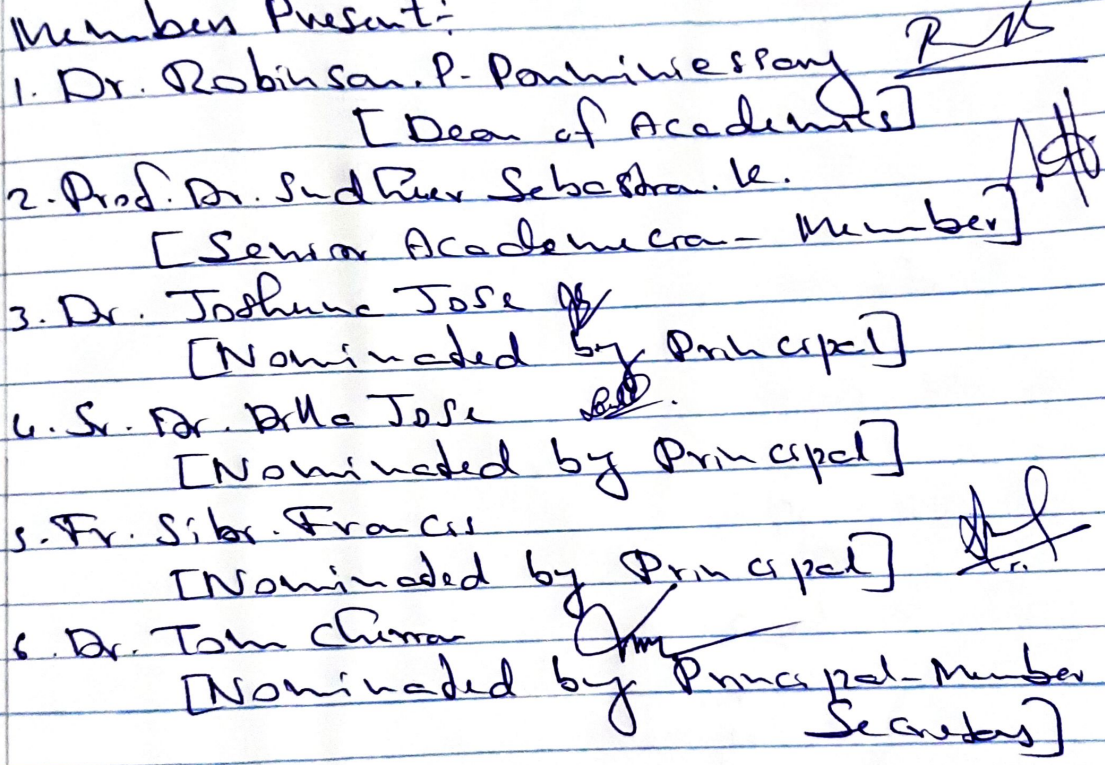 Members Present:-
1. Dr. Robinson. P.
[Dean of Academics]
2. Prof. Dr. Sudheer Sebastian. K.
[Senior Academecian - Member]
3. Dr. Joshuna Jose
[Nominaded by Principal]
4. Sr. Dr. Jose
[Nominaded by Principal]
5. Fr. Sibi. Francis
[Nominaded by Principal]
6. Dr. Tom
[Nominaded by Principal - Member
Secretary]